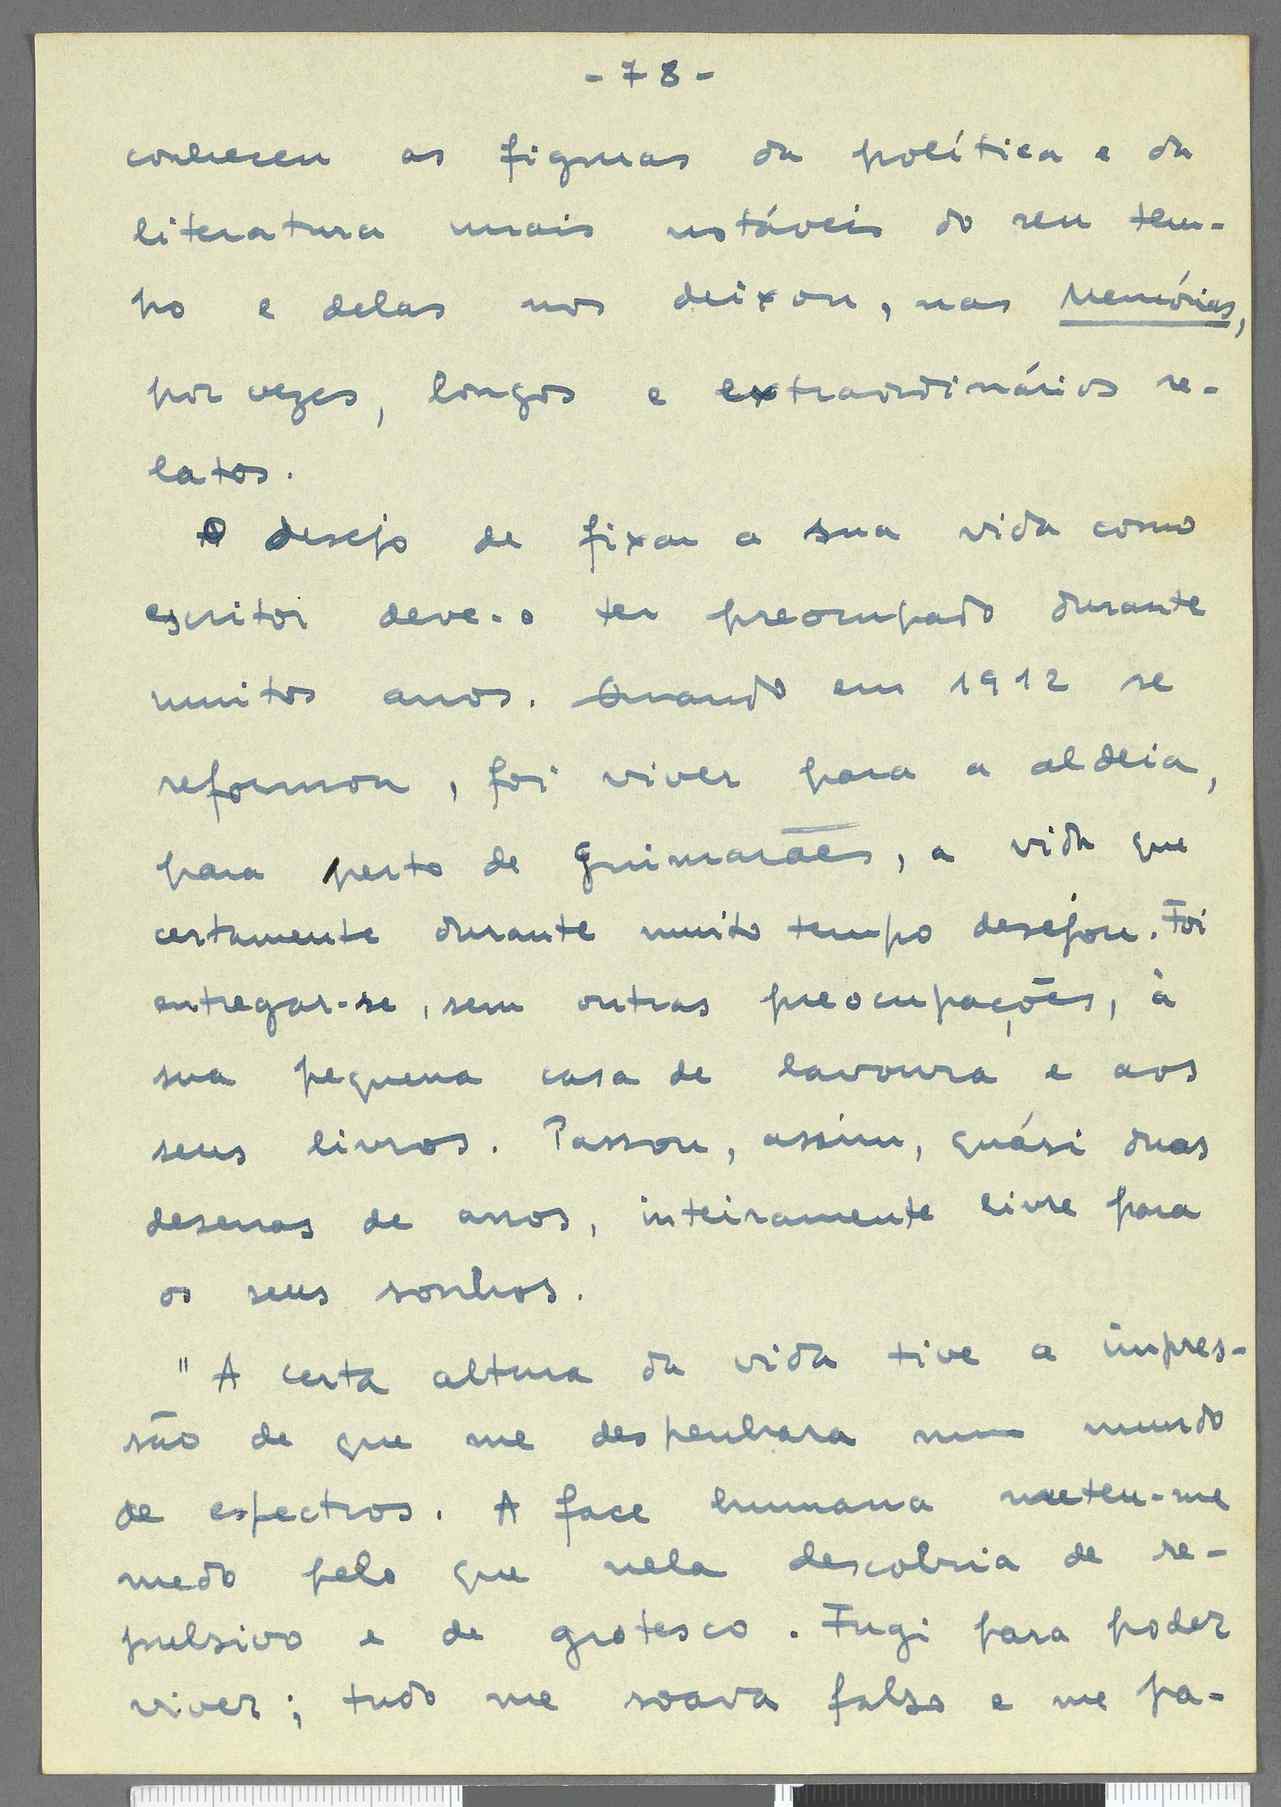 - 78 -
conheceu as figuras da política e da
literatura mais notáveis do seu tem-
po e delas nos deixou, nas Memórias,
por vezes, longos e extraordinários re-
latos.
O desejo de fixar a sua vida como
escritor deve-o ter preocupado durante
muitos anos. Quando em 1912 se
reformou, foi viver para a aldeia,
para perto de Guimarães, a vida que
certamente durante muito tempo desejou. Foi
entregar-se, sem outras preocupações, à
sua pequena casa de lavoura e aos
seus livros. Passou, assim, quási duas
desenas de anos, inteiramente livre para
os seus sonhos.
"A certa altura da vida tive a impres-
são de que me despenhara num mundo
de espectros. A face humana meteu-me
medo pelo que nela descobria de re-
pulsivo e de grotesco. Fugi para poder
viver; tudo me soava falso e me pa-